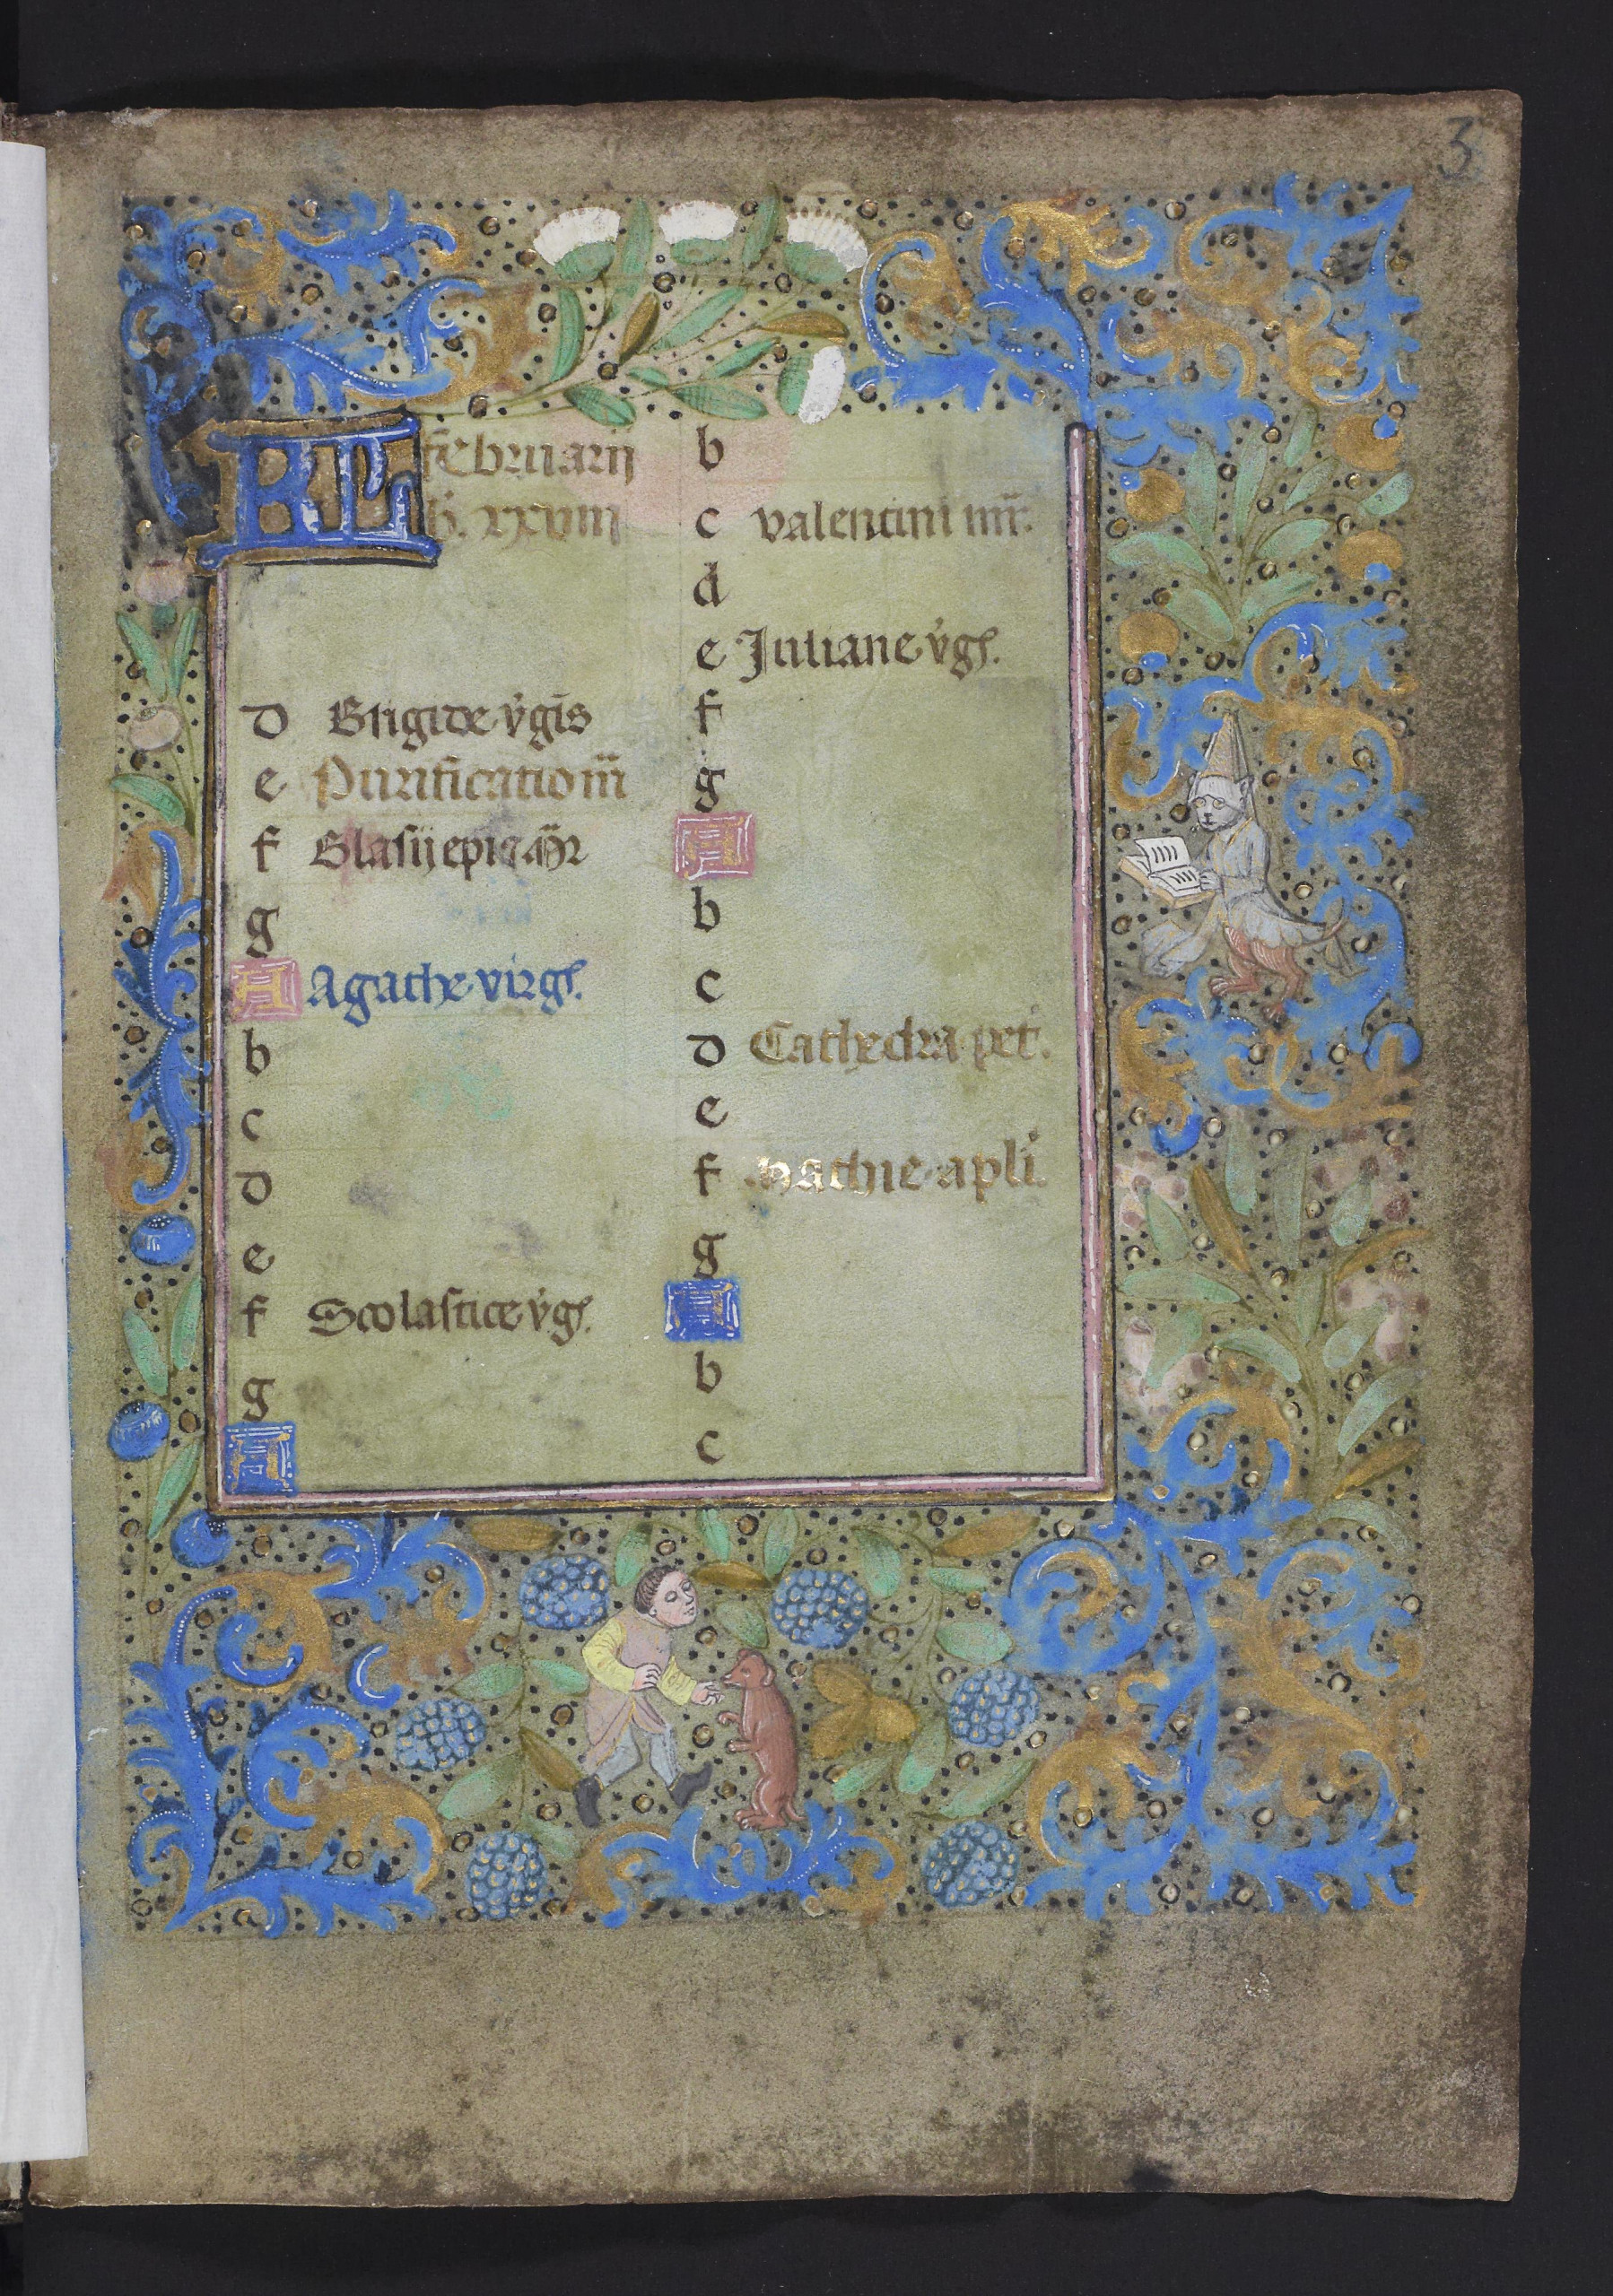 3
KL februarij
h. xxviij
d Brigide v̇gis
e Purificatio m̄
f Blasij epi
g
A Agathe virgꝭ.
b
c
d
e
f Scolastice v̇gꝭ.
g
A
b
c valentini mr̄.
d
e Juliane v̇gꝭ.
f
g
A
b
c
d Cathedra pet.
e
f Mathie apli.
g
A
b
c